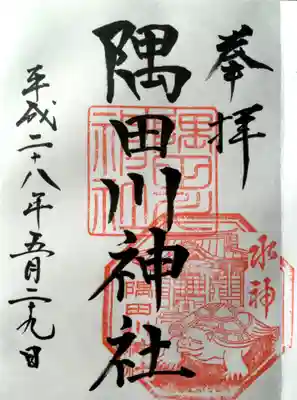 奉拝
隅田川神社
水神
隅田川神社
平成二十八年五月二十九日